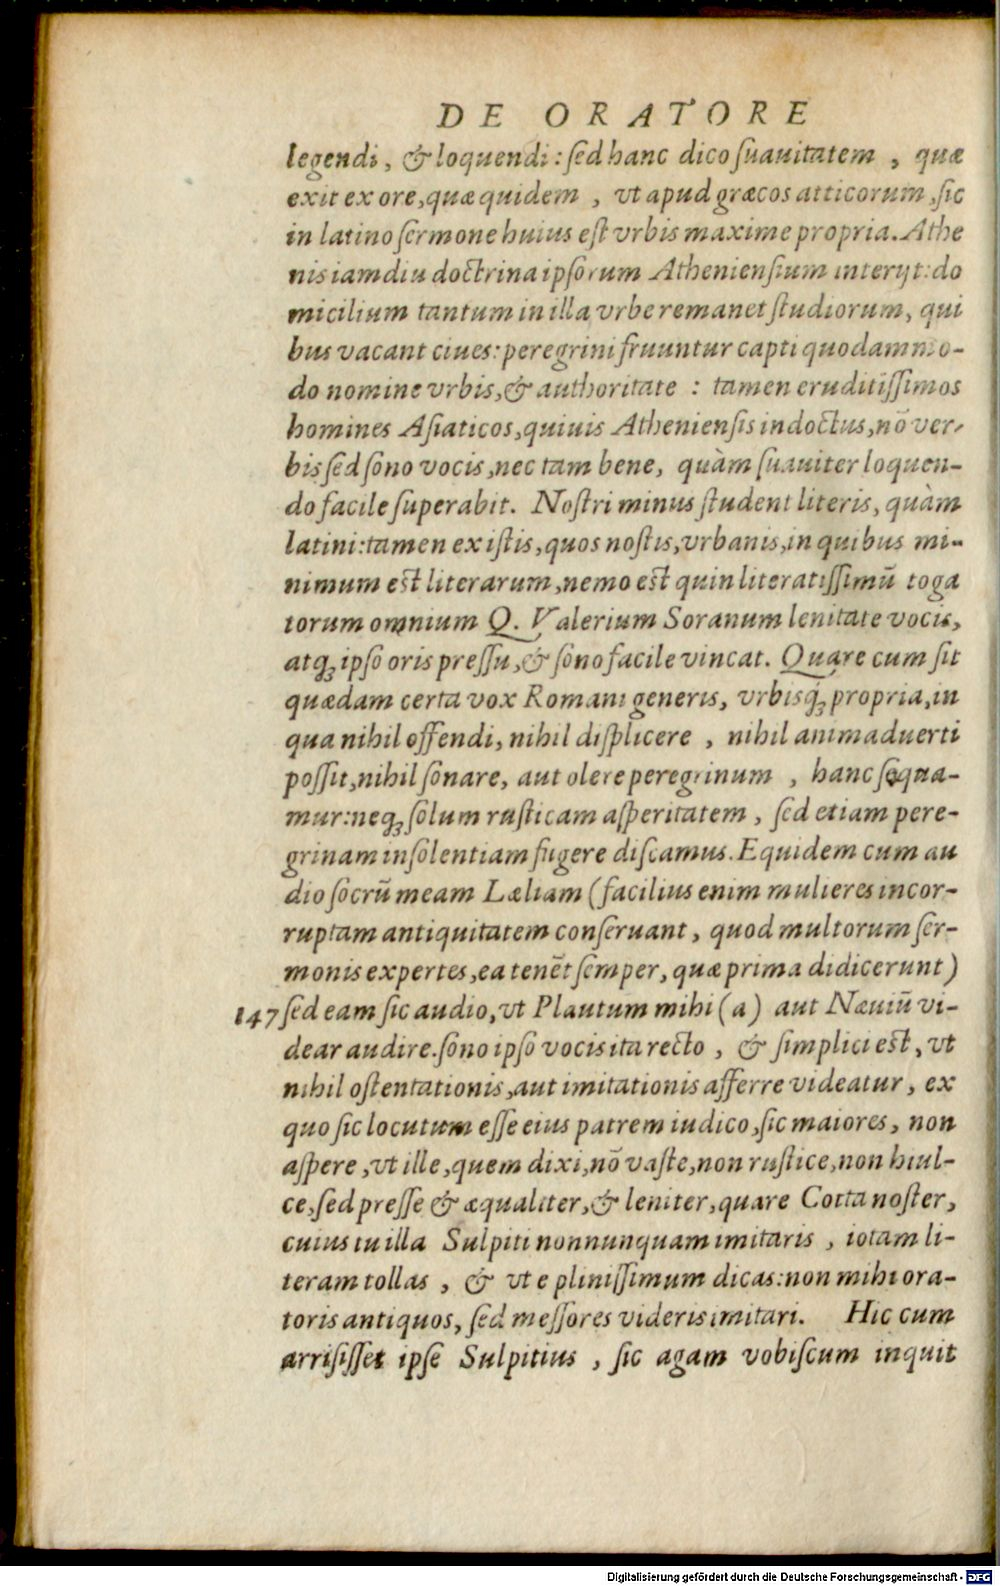 DE ORATORE
legendi, & loquendi: sed hanc dico suauitatem, quæ
exit ex ore, quæ quidem, vt apud græcos atticorum, sic
in latino sermone huius est vrbis maxime propria. Athe
nis iamdiu doctrina ipsorum Atheniensium interijt: do
micilium tantum in illa vrbe remanet studiorum, qui
bus vacant ciues: peregrini fruuntur capti quodammo-
do nomine vrbis, & authoritate : tamen eruditissimos
homines Asiaticos, quiuis Atheniensis indoctus, nō ver-
bis sed sono vocis, nec tam bene, quàm suauiter loquen-
do facile superabit. Nostri minus student literis, quàm
latini: tamen ex istis, quos nostis, vrbanis, in quibus mi-
nimum est literarum, nemo est quin literatissimū toga
torum omnium Q. Valerium Soranum lenitate vocis,
atq; ipso oris pressu, & sono facile vincat. Quare cum sit
quædam certa vox Romani generis, vrbisq́; propria, in
qua nihil offendi, nihil displicere, nihil animaduerti
possit, nihil sonare, aut olere peregrinum, hanc sequa-
mur: neq; solum rusticam asperitatem, sed etiam pere-
grinam insolentiam fugere discamus. Equidem cum au
dio socrū meam Læliam (facilius enim mulieres incor-
ruptam antiquitatem conseruant, quod multorum ser-
monis expertes, ea tenēt semper, quæ prima didicerunt)
147 sed eam sic audio, vt Plautum mihi (a) aut Næuiū vi-
dear audire. sono ipso vocis ita recto, & simplici est, vt
nihil ostentationis, aut imitationis afferre videatur, ex
quo sic locutum esse eius patrem iudico, sic maiores, non
aspere, vt ille, quem dixi, nō vaste, non rustice, non hiul-
ce, sed presse & æqualiter, & leniter, quare Cotta noster,
cuius tu illa Sulpiti nonnunquam imitaris, iotam li-
teram tollas, & vt e plinissimum dicas: non mihi ora-
toris antiquos, sed messores videris imitari. Hic cum
arrisisset ipse Sulpitius, sic agam vobiscum inquit
Digitalisierung gefördert durch die Deutsche Forschungsgemeinschaft - DFG